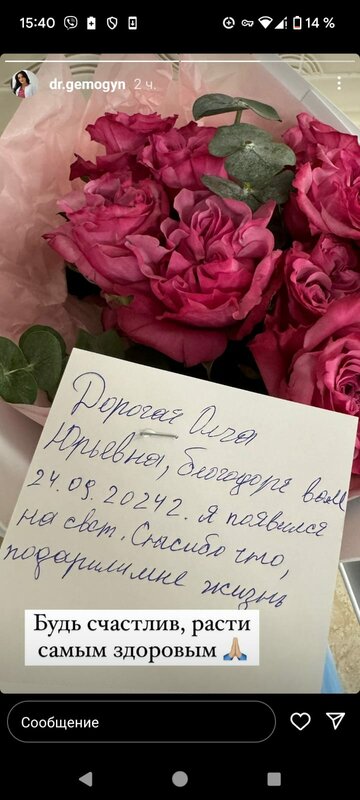 15:40
14 %
dr.gemogyn 2 ч.
Дорогая Ольга
Юрьевна, благодаря вам
24.09.2024г. я появился
на свет. Спасибо что,
подарили мне жизнь
Будь счастлив, расти
самым здоровым 🙏🏼
Сообщение